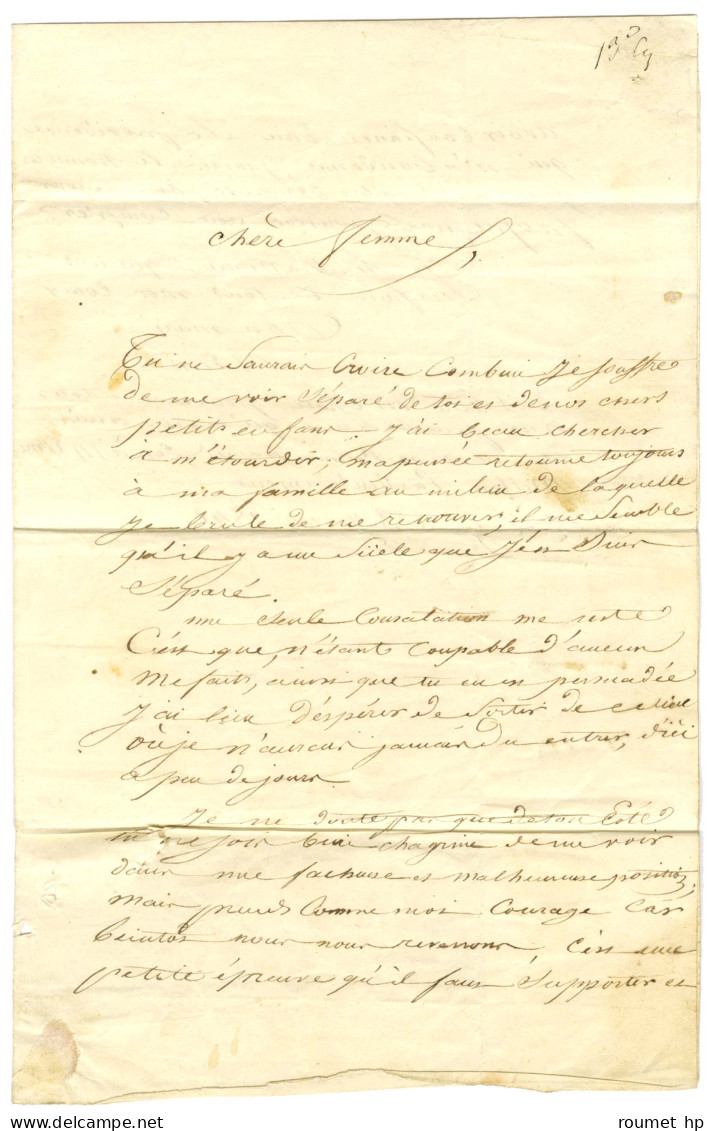 chère femme,
Tu ne Saurais Croire Combien Je souffre
de me voir séparé de toi et de nos chers
petits enfans. J'ai beau chercher
à m'étourdir, ma pensée retourne toujours
à ma famille au milieu de laquelle
Je brule de me retrouver, il me Semble
qu'il y a un Siècle que J'en Suis
Séparé.
une Seule Consolation me reste
C'est que, n'étant Coupable d'aucun
Mefait, ainsi que tu en es persuadée
J'ai lieu d'éspérer de Sortir de ce lieu
où je n'aurais jamais du entrer, d'ici
a peu de jours.
Je ne doute pas que de ton Coté
tu ne sois bien chagrine de me voir
dans une facheuse et malheureuse position,
Mais prends Comme moi Courage Car
bientot nous nous reverrons C'est une
petite épreuve qu'il faut Supporter et
roumet hp